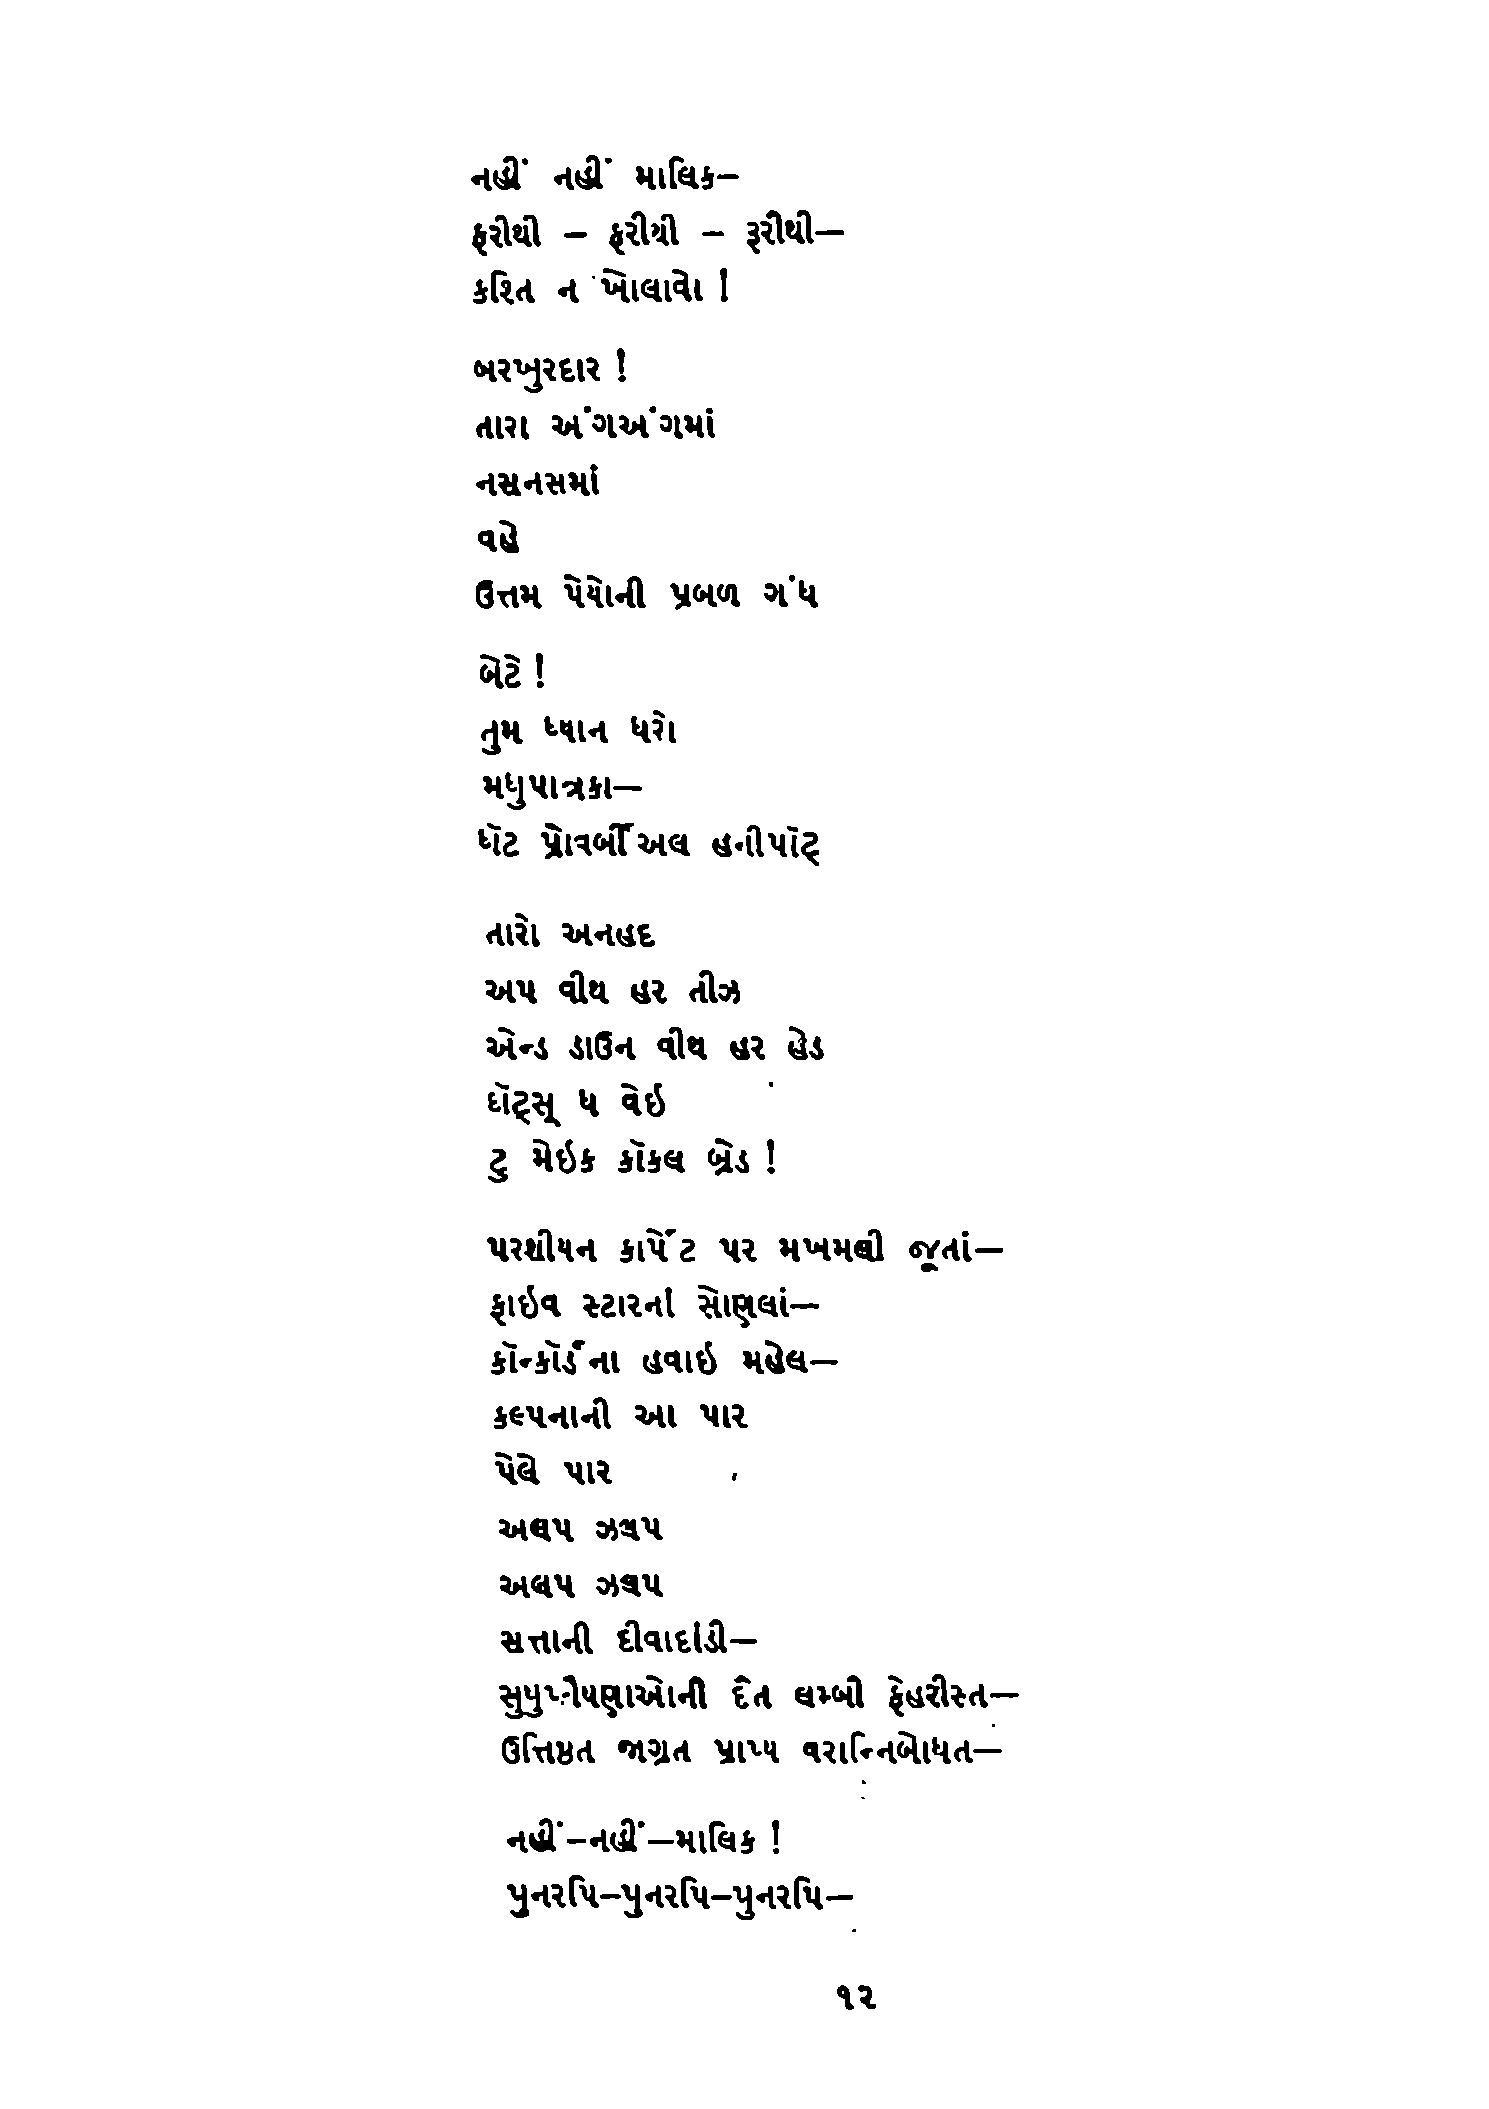 નહીં નહીં માલિક–
ફરીથી – ફરીથી – ફરીથી–
કશ્તિ ન ખોલાવો !
બરખુરદાર !
તારા અંગઅંગમાં
નસનસમાં
વહે
ઉત્તમ પેયોની પ્રબળ ગંધ
બેટે !
તુમ ધ્યાન ધરો
મધુપાત્રકા–
ધૅટ પ્રોવર્બીઅલ હનીપૉટ્
તારો અનહદ
અપ વીથ હર તીઝ
ઍન્ડ ડાઉન વીથ હર હેડ
ધૅટ્સ્ ધ વેઇ
ટુ મેઇક કૉકલ બ્રેડ !
પરશીયન કાર્પેટ પર મખમલી જૂતાં–
ફાઇવ સ્ટારનાં સોણલાં–
કૉન્કૉર્ડના હવાઇ મહેલ–
કલ્પનાની આ પાર
પેલે પાર
અલપ ઝલપ
અલપ ઝલપ
સત્તાની દીવાદાંડી–
લમ્બી ફેહરીસ્ત–
ઉત્તિષ્ઠત જાગ્રત પ્રાપ્ય વરાન્નિબોધત–
નહીં–નહીં–માલિક !
પુનરપિ–પુનરપિ–પુનરપિ–
૧૨